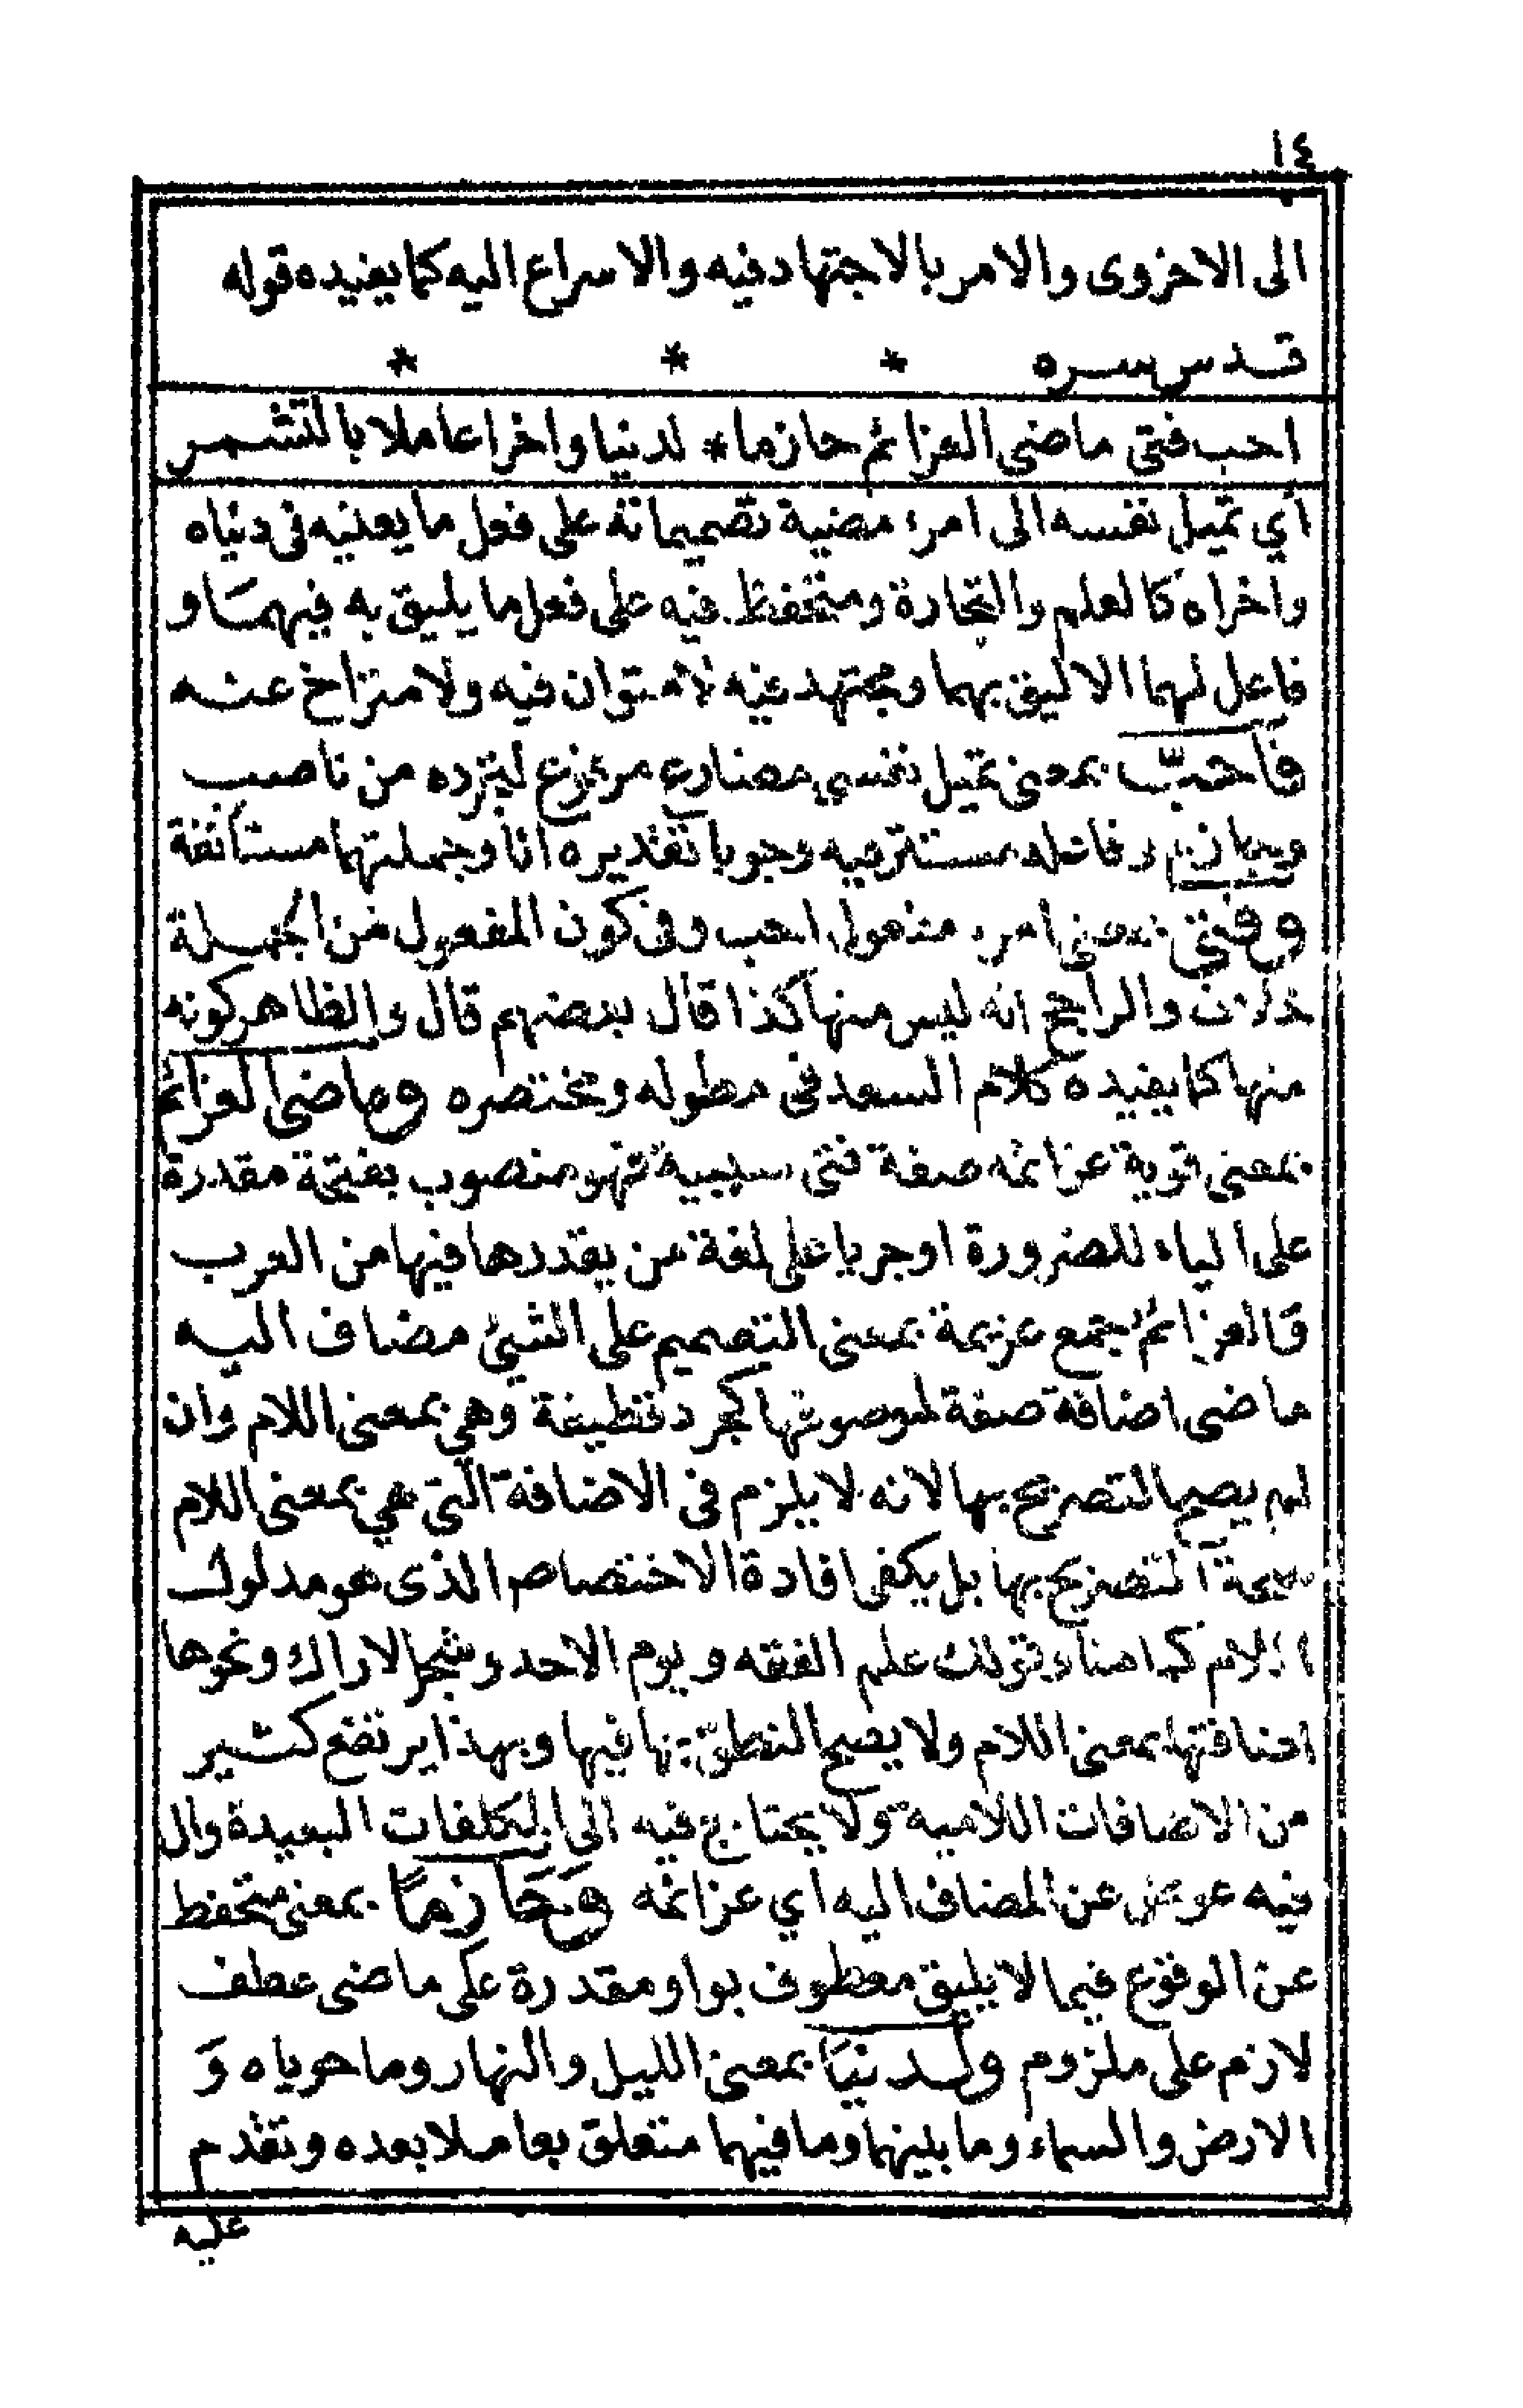 ١٤
الى الاخروى والامر بالاجتهاد فيه والاسراع اليه كما يفيده قوله
قدس سره * * *
احب فتى ماضى العزائم حازما * لدنيا واخرا عاملا بالتشمر
أي تميل نفسه الى امرء مضية تصميماته على فعل ما يعنيه فى دنياه
واخراه كالعلم والتجارة ومتحفظ فيه على فعل ما يليق به فيهما و
فاعل لهما الاليق بهما ومجتهد فيه لا متوان فيه ولا متراخ عنه
فأحبّ بمعنى تميل نفسي مضارع مرفوع لتجرده من ناصب
وجازم وفاعله مستتر فيه وجوبا تقديره انا وجملتهما مستأنفة
وفتى بمعنى امرء مفعول احب وفى كون المفعول من الجملة
خلاف والراجح انه ليس منها كذا قال بعضهم قال والظاهر كونه
منها كما يفيده كلام السعد فى مطوله ومختصره وماضى العزائم
بمعنى قوية عزائمه صفة فتى سببية فهو منصوب بفتحة مقدرة
على الياء للضرورة او جريا على لغة من يقدرها فيها من العرب
فالعزائم جمع عزيمة بمعنى التصميم على الشئ مضاف اليه
ماضى اضافة صفة لموصوفها كجرد قطيفة وهي بمعنى اللام وان
لم يصح التصريح بها لانه لا يلزم فى الاضافة التى هي بمعنى اللام
صحة التصريح بها بل يكفى افادة الاختصاص الذى هو مدلول
اللام كما هنا وقولك علم الفقه ويوم الاحد وشجر الاراك ونحوها
اضافتها بمعنى اللام ولا يصح النطق بها فيها وبهذا يرتفع كثير
من الاضافات اللامية ولا يحتاج فيه الى التكلفات البعيدة وال
فيه عوض عن المضاف اليه اي عزائمه وَحَازِمًا بمعنى متحفظ
عن الوقوع فيما لا يليق معطوف بواو مقدرة على ماضى عطف
لازم على ملزوم ولدنيَا بمعنى الليل والنهار وما حوياه وَ
الارض والسماء وما بينهما وما فيهما متعلق بعاملا بعده وتقدم
عليه